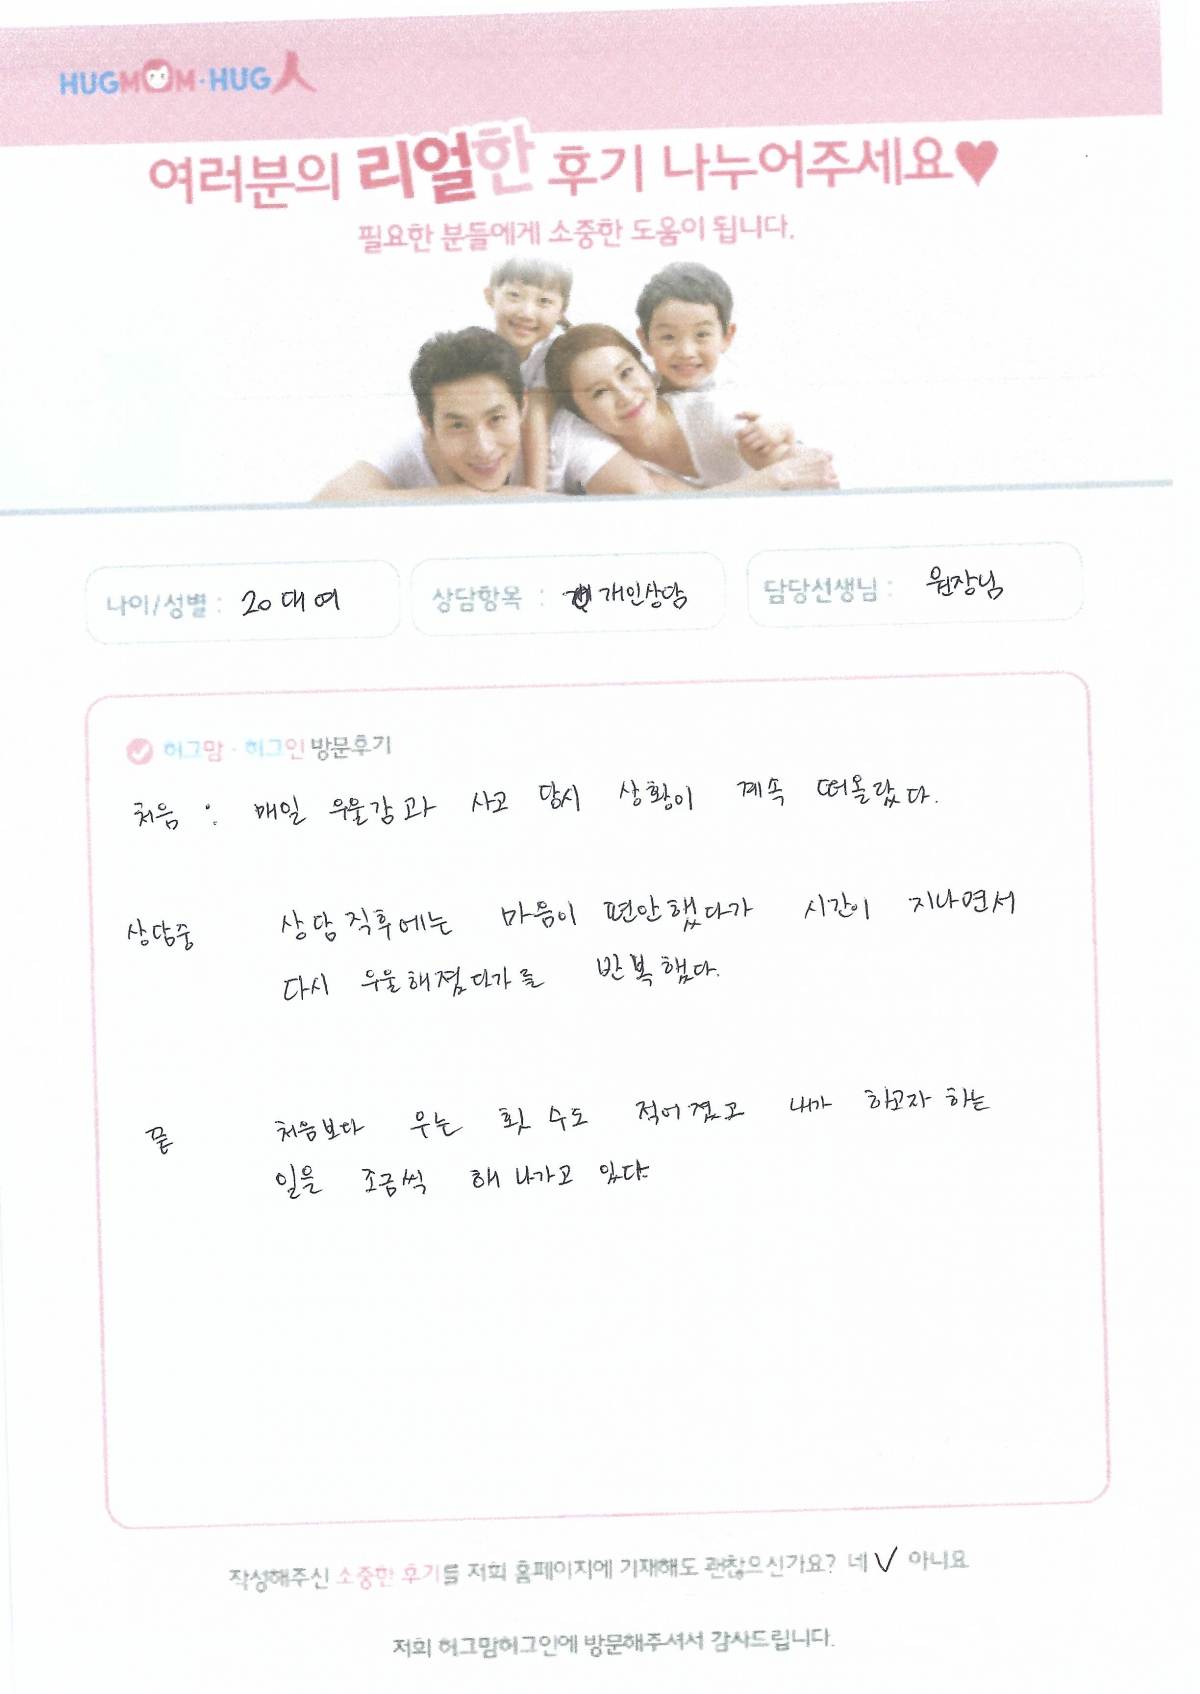 HUGMOM·HUG人
여러분의 리얼한 후기 나누어주세요♥
필요한 분들에게 소중한 도움이 됩니다.
나이/성별 : 20대여
상담항목 : 개인상담
담당선생님 : 원장님
허그맘·허그인 방문후기
처음 : 매일 우울감과 사고 당시 상황이 계속 떠올랐다.
상담중 상담 직후에는 마음이 편안했다가 시간이 지나면서
다시 우울해졌다가를 반복했다.
끝 처음보다 우는 횟수도 적어졌고 내가 하고자 하는
일을 조금씩 해 나가고 있다
작성해주신 소중한 후기를 저희 홈페이지에 기재해도 괜찮으신가요? 네 ✓ 아니요
저희 허그맘허그인에 방문해주셔서 감사드립니다.